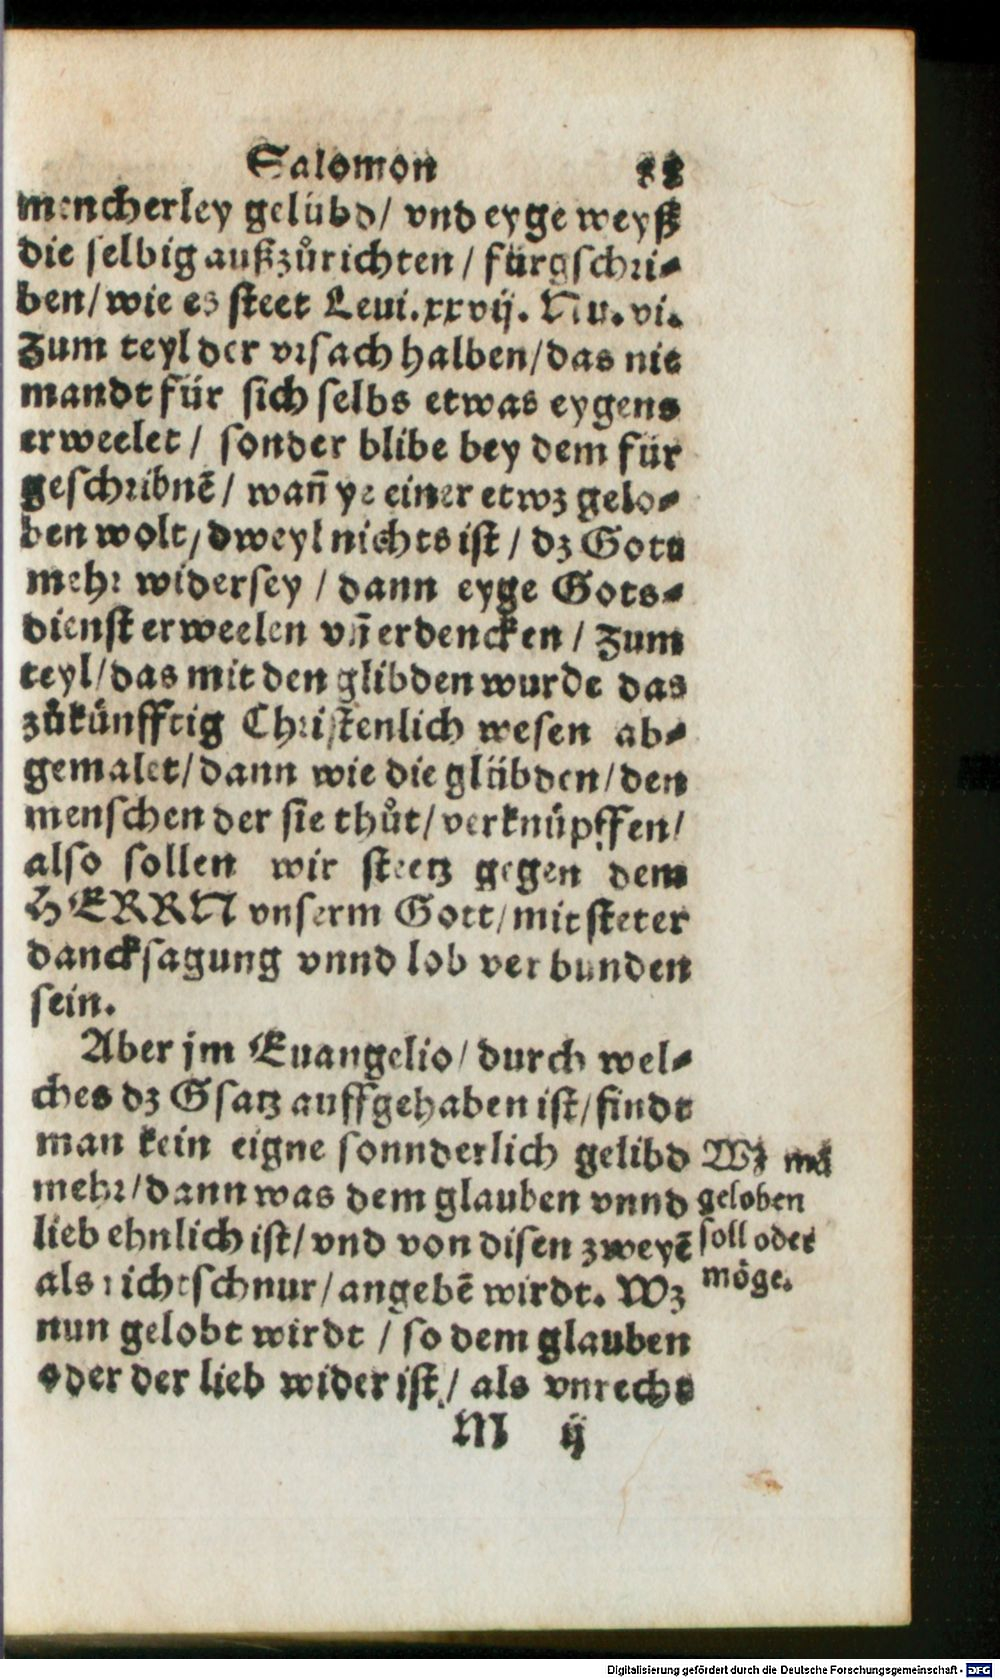 Salomon 88
mencherley gelübd/ vnd eyge weyß
die selbig außzůrichten / fürgschri⸗
ben/wie es steet Leui.xxvij. Nu.vi.
Zum teyl der vrsach halben/das nie
mandt für sich selbs etwas eygens
erweelet / sonder blibe bey dem für
geschribnē / wañ ye einer etwz gelo⸗
ben wolt/dweyl nichts ist / dz Gott
mehr widersey / dann eyge Gots⸗
dienst erweelen vñ erdencken / Zum
teyl/das mit den glibden wurde das
zůkünfftig Christenlich wesen ab⸗
gemalet/dann wie die glübden/den
menschen der sie thůt/verknüpffen/
also sollen wir steetz gegen dem
HERRN vnserm Gott/mit steter
dancksagung vnnd lob verbunden
sein.
Aber jm Euangelio/durch wel⸗
ches dz Gsatz auffgehaben ist/findt
man kein eigne sonnderlich gelibd
mehr/dann was dem glauben vnnd
lieb ehnlich ist/vnd von disen zweyē
als richtschnur/angebē wirdt. Wz
nun gelobt wirdt / so dem glauben
oder der lieb wider ist / als vnrecht
Wz mā
geloben
soll oder
möge.
M ij
Digitalisierung gefördert durch die Deutsche Forschungsgemeinschaft - DFG